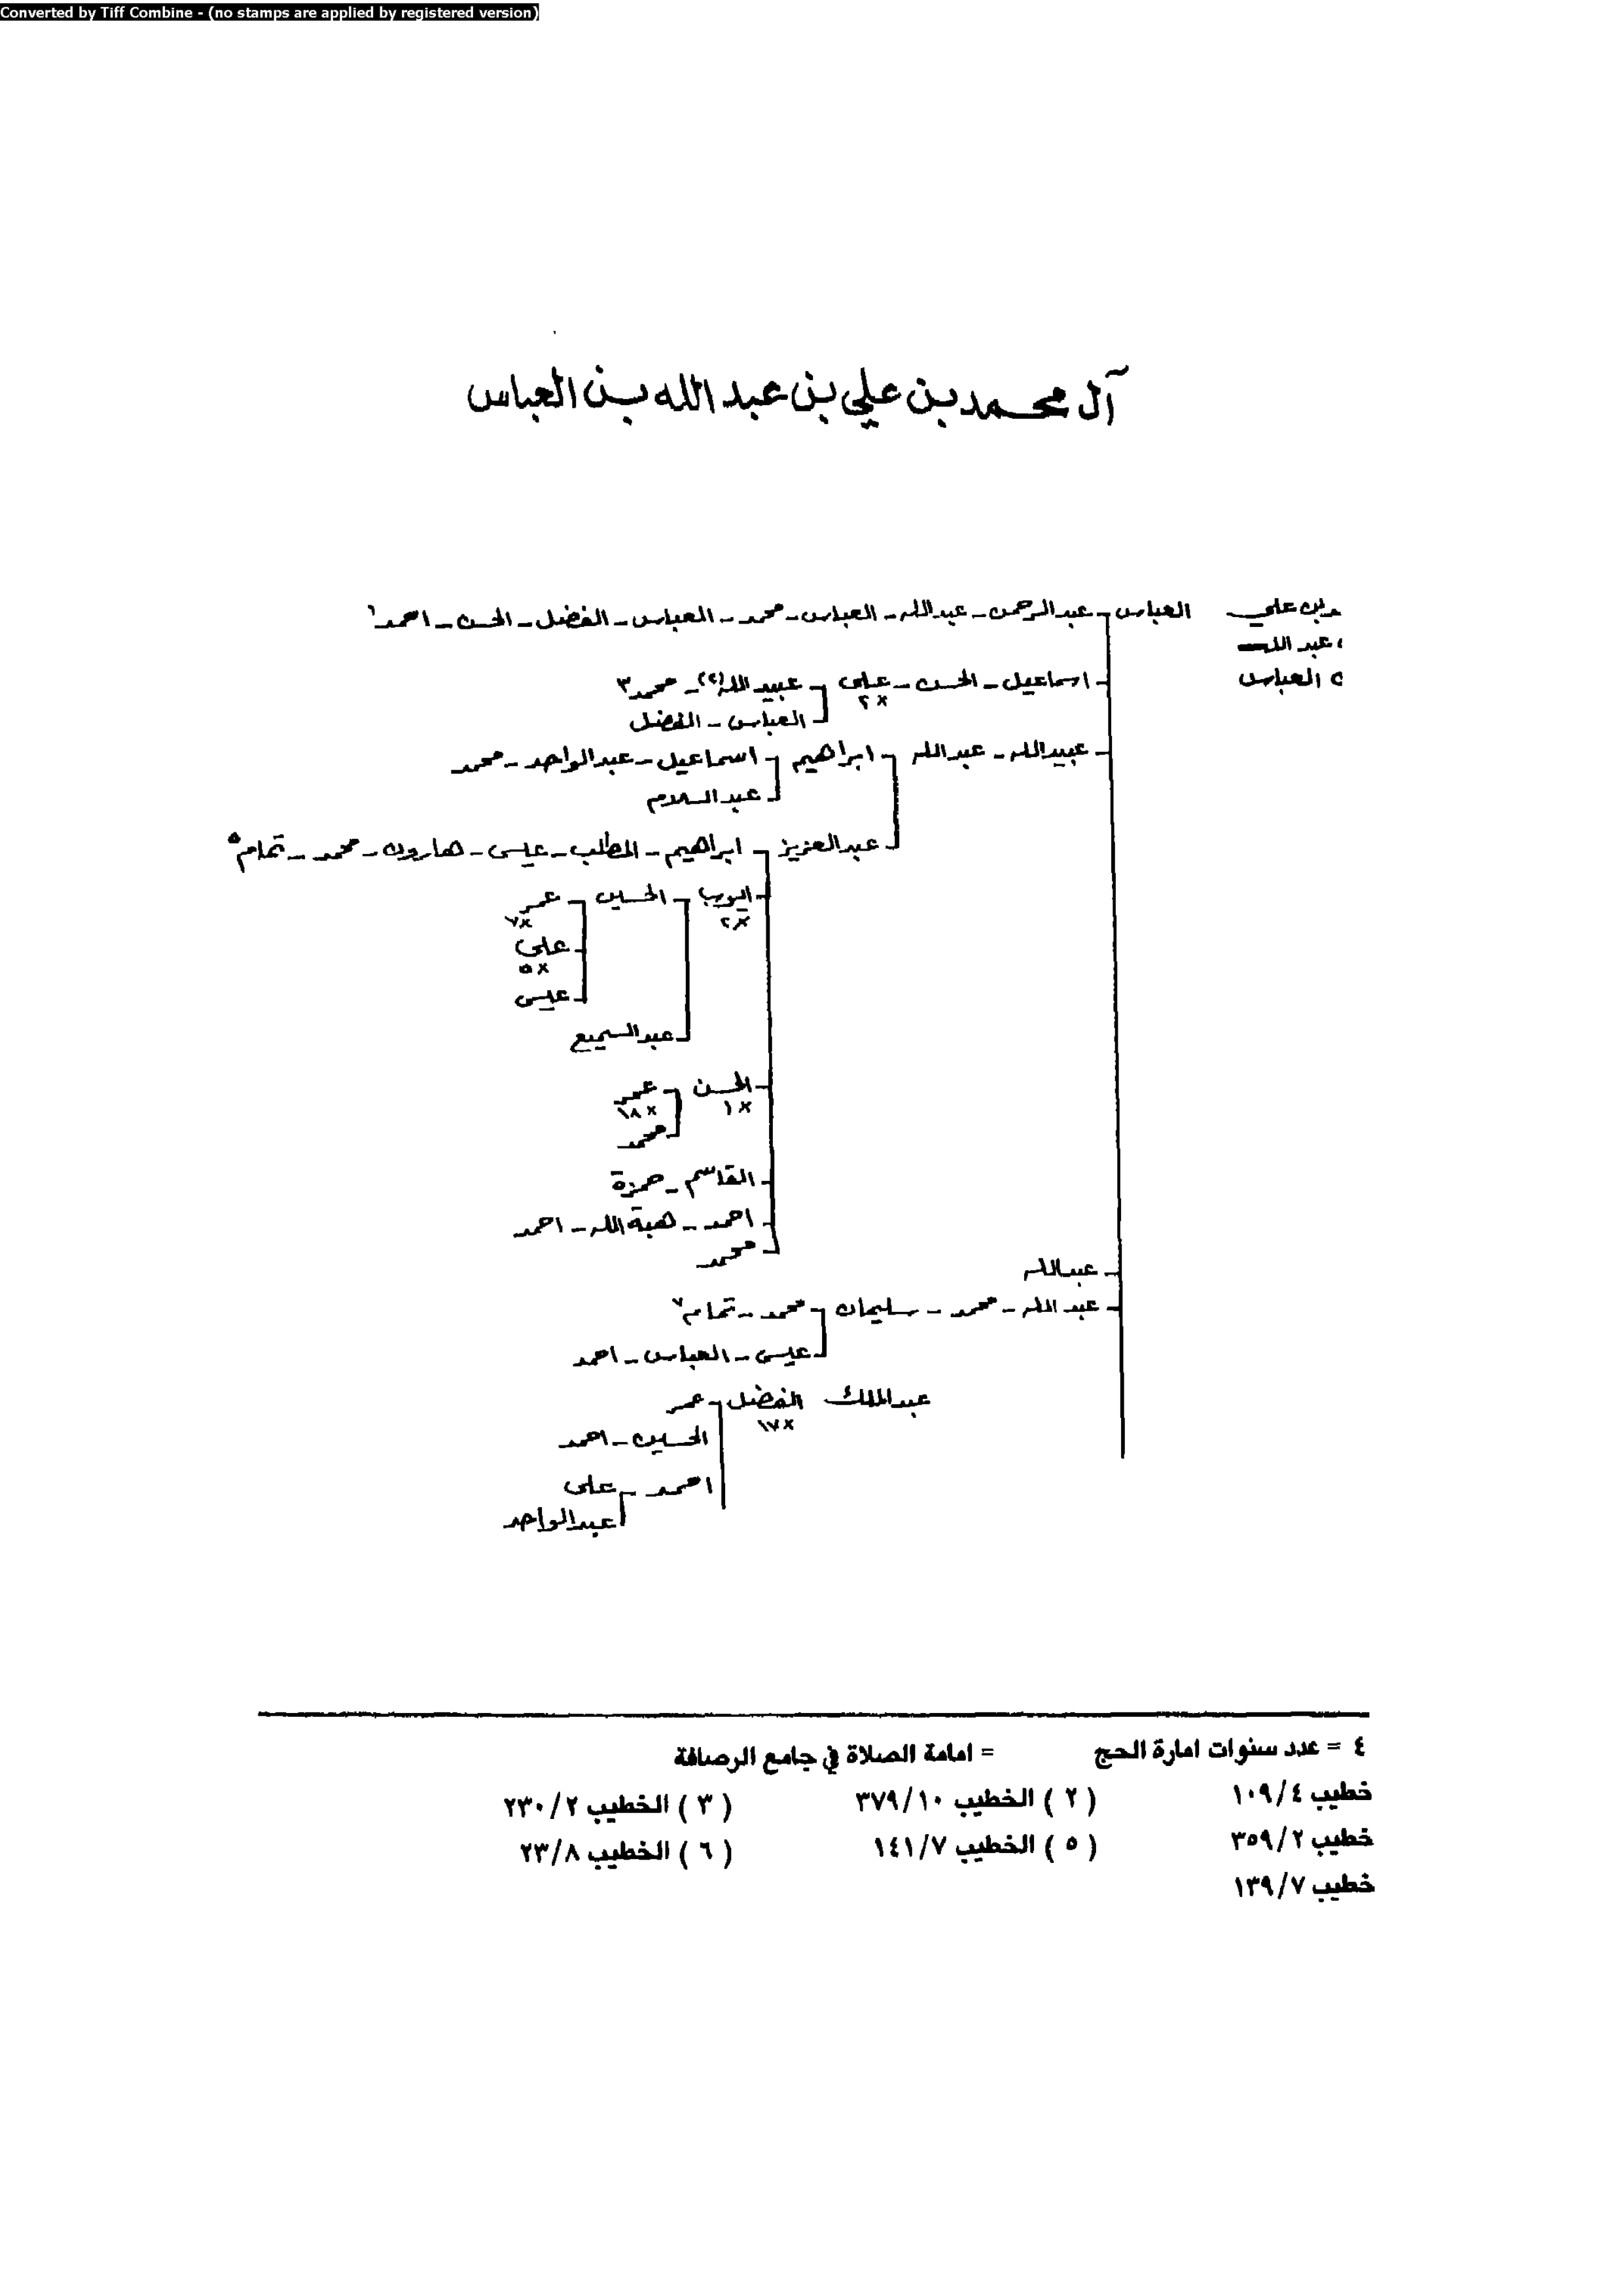 Converted by Tiff Combine - (no stamps are applied by registered version)
آل محمد بن علي بن عبد الله بن العباس
بن علي العباس - عبدالرحمن - عبدالله - العباس - محمد - العباس - الفضل - الحسن - احمد ١
عبد الله
العباس
اسماعيل - الحسن - علي - عبيد الله (٢) - محمد ٣
× ٢
العباس - الفضل
عبيدالله - عبدالله - ابراهيم - اسماعيل - عبدالواحد - محمد
عبد السلام
عبدالعزيز - ابراهيم - المطلب - عيسى - هارون - محمد - تمام ٥
ايوب - الحسين - عمر
× ٢ × ٧
علي
× ٥
عيسى
عبدالسميع
الحسن - عمر
× ١ × ١٨
محمد
القاسم - حمزة
احمد - هبة الله - احمد
محمد
عبدالله
عبد الله - محمد - سليمان - محمد - تمام ٧
عيسى - العباس - احمد
عبدالملك الفضل - عمر
× ١٧
الحسين - احمد
احمد - علي
عبدالواحد
٤ = عدد سنوات امارة الحج = امامة الصلاة في جامع الرصافة
خطيب ١٠٩/٤ ( ٢ ) الخطيب ٣٧٩/١٠ ( ٣ ) الخطيب ٢٣٠/٢
خطيب ٣٥٩/٢ ( ٥ ) الخطيب ١٤١/٧ ( ٦ ) الخطيب ٢٣/٨
خطيب ١٣٩/٧